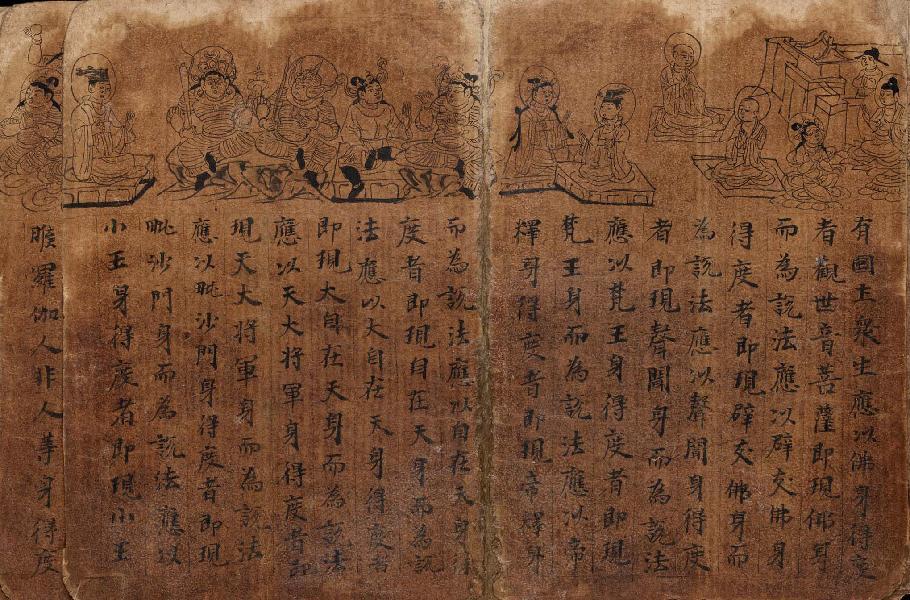 有國土衆生應以佛身得度
者觀世音菩薩即現佛身
而為說法應以辟支佛身
得度者即現辟支佛身而
為說法應以聲聞身得度
者即現聲聞身而為說法
應以梵王身得度者即現
梵王身而為說法應以帝
釋身得度者即現帝釋身
而為說法應以自在天身得
度者即現自在天身而為說
法應以大自在天身得度者
即現大自在天身而為說法
應以天大将軍身得度者即
現天大将軍身而為說法
應以毗沙門身得度者即現
毗沙門身而為說法應以
小王身得度者即現小王
睺羅伽人非人等身得度